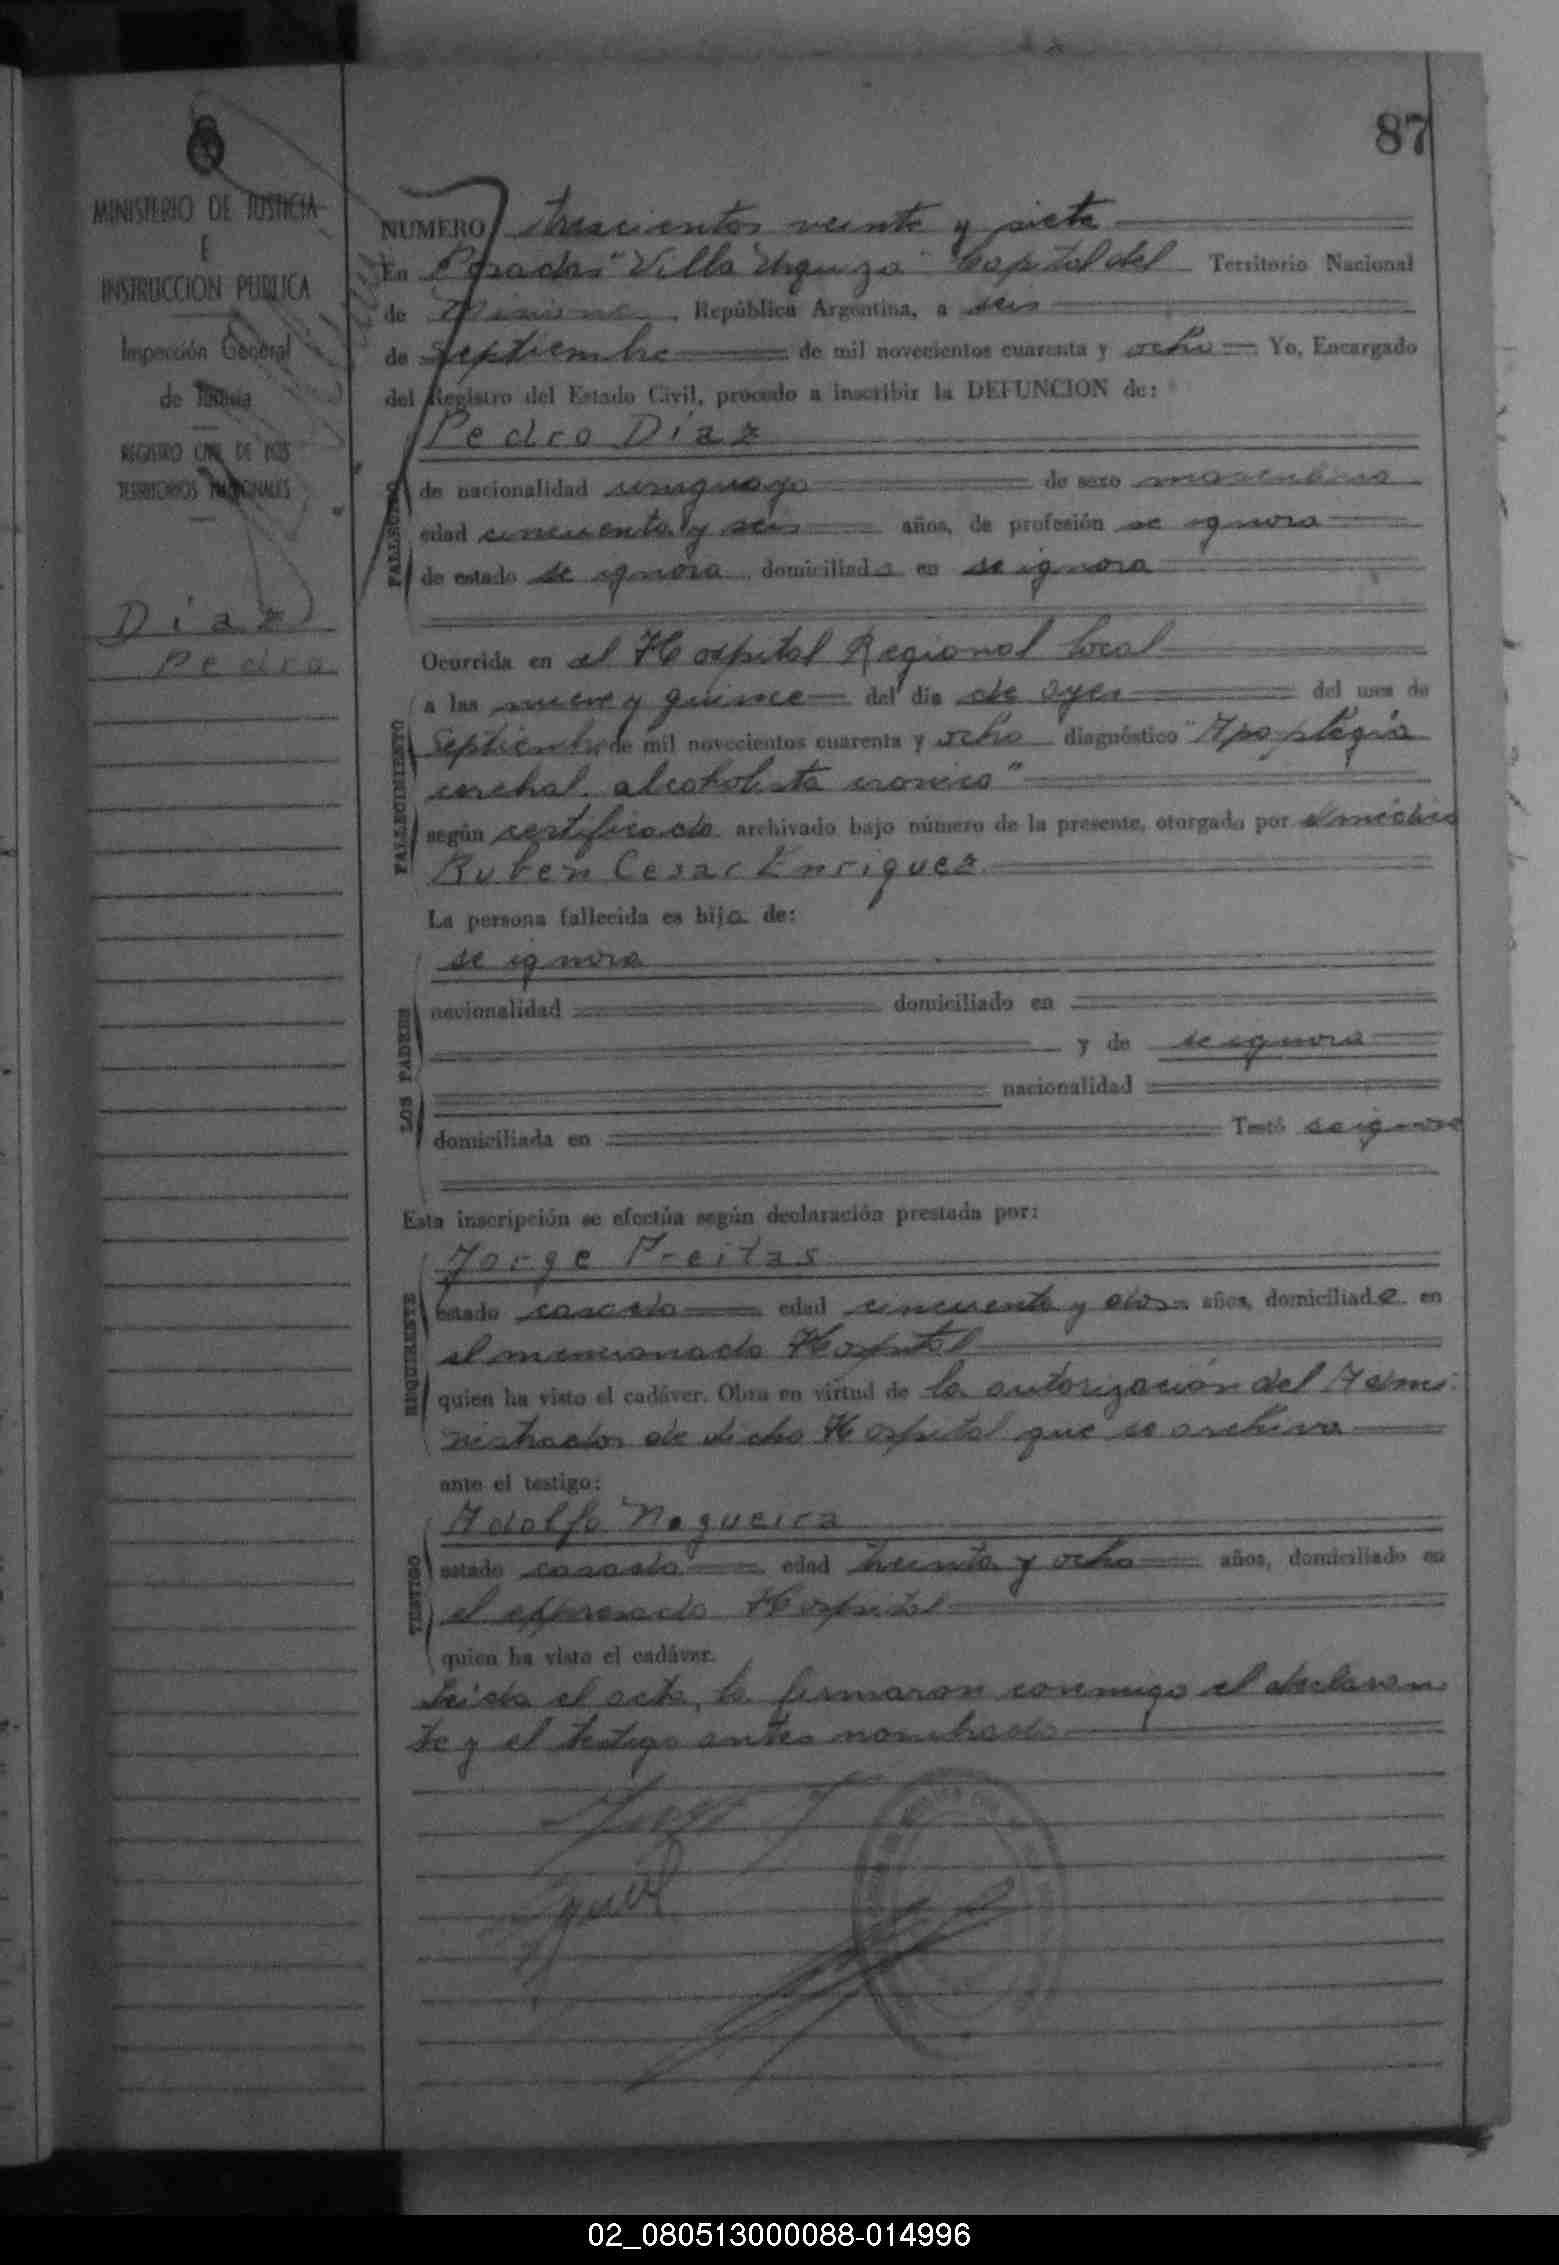 87
MINISTERIO DE JUSTICIA
E
INSTRUCCION PUBLICA
Inspección General
de Justicia
REGISTRO CIVIL DE LOS
TERRITORIOS NACIONALES
Díaz
Pedro
NUMERO trescientos veinte y siete
En Posadas "Villa Urquiza" Capital del Territorio Nacional
de Misiones, República Argentina, a seis
de Septiembre de mil novecientos cuarenta y ocho Yo, Encargado
del Registro del Estado Civil, procedo a inscribir la DEFUNCION de:
Pedro Díaz
FALLECIDO
de nacionalidad uruguayo de sexo masculino
edad cincuenta y seis años, de profesión se ignora
de estado se ignora domiciliado en se ignora
Ocurrida en el Hospital Regional local
FALLECIMIENTO
a las nueve y quince del día de ayer del mes de
Septiembre de mil novecientos cuarenta y ocho diagnóstico "Apoplegia
cerebal. alcoholista cronico"
según certificado archivado bajo número de la presente, otorgado por el médico
Ruben Cesar Enriquez
La persona fallecida es hijo de:
LOS PADRES
se ignora
nacionalidad domiciliado en
y de se ignora
nacionalidad
domiciliada en Testó se ignora
Esta inscripción se efectúa según declaración prestada por:
REQUIRENTE
Jorge Freitas
estado casado edad cincuenta y dos años, domiciliado en
el mencionado Hospital
quien ha visto el cadáver. Obra en virtud de la autorización del Admi
nistrador de dicho Hospital que se archiva
ante el testigo:
TESTIGO
Adolfo Nogueira
estado casado edad treinta y ocho años, domiciliado en
el expresado Hospital
quien ha visto el cadáver.
Leida el acta, la firmaron conmigo el declaran
te y el testigo antes nombrado
02_080513000088-014996